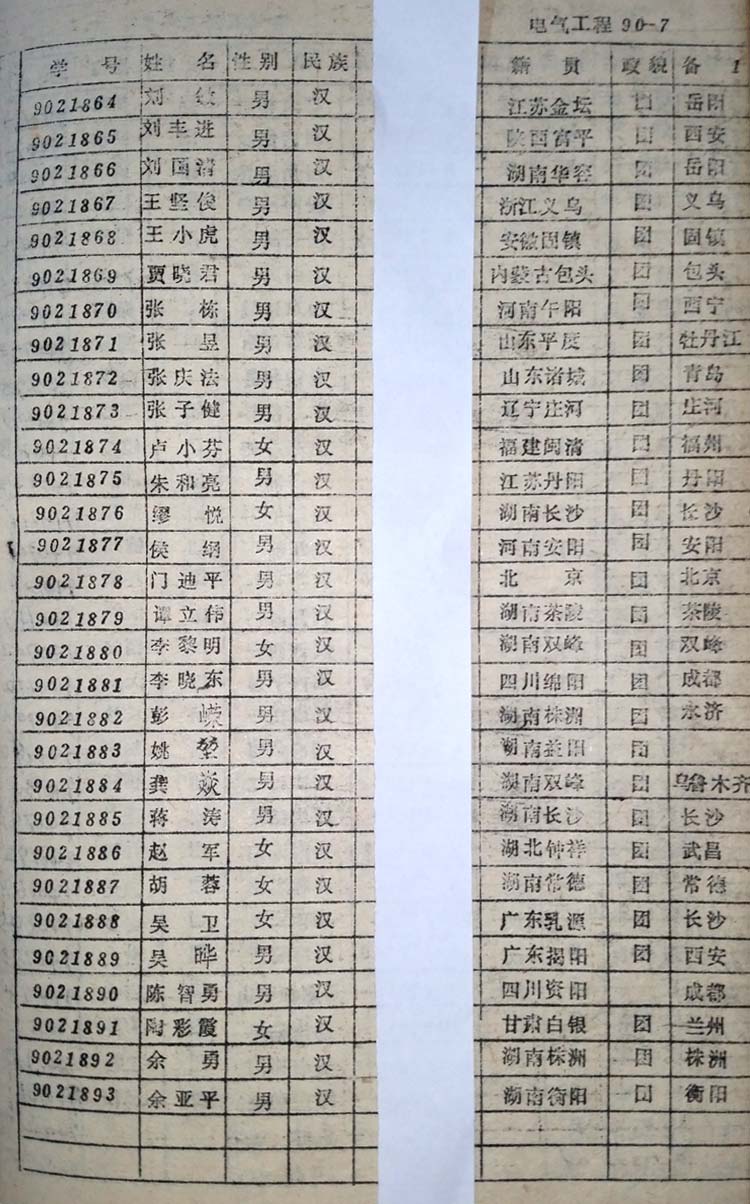 电气工程90-7
学号 姓名 性别 民族 籍贯 政貌 备1
9021864 刘 男 汉 江苏金坛 团 岳阳
9021865 刘丰进 男 汉 陕西富平 团 西安
9021866 刘国清 男 汉 湖南华容 团 岳阳
9021867 王坚俊 男 汉 浙江义乌 团 义乌
9021868 王小虎 男 汉 安徽固镇 团 固镇
9021869 贾晓君 男 汉 内蒙古包头 团 包头
9021870 张栋 男 汉 河南 团 西宁
9021871 张昱 男 汉 山东平度 团 牡丹江
9021872 张庆法 男 汉 山东诸城 团 青岛
9021873 张子健 男 汉 辽宁庄河 团 庄河
9021874 卢小芬 女 汉 福建闽清 团 福州
9021875 朱和亮 男 汉 江苏丹阳 团 丹阳
9021876 缪悦 女 汉 湖南长沙 团 长沙
9021877 侯纲 男 汉 河南安阳 团 安阳
9021878 门迪平 男 汉 北京 团 北京
9021879 谭立伟 男 汉 湖南茶陵 团 茶陵
9021880 李黎明 女 汉 湖南双峰 团 双峰
9021881 李晓东 男 汉 四川绵阳 团 成都
9021882 彭嵘 男 汉 湖南株洲 团 永济
9021883 姚 男 汉 湖南益阳 团
9021884 龚焱 男 汉 湖南双峰 团 乌鲁木齐
9021885 蒋涛 男 汉 湖南长沙 团 长沙
9021886 赵军 女 汉 湖北钟祥 团 武昌
9021887 胡蓉 女 汉 湖南常德 团 常德
9021888 吴卫 女 汉 广东乳源 团 长沙
9021889 吴晔 男 汉 广东揭阳 团 西安
9021890 陈智勇 男 汉 四川资阳 成都
9021891 陶彩霞 女 汉 甘肃白银 团 兰州
9021892 余勇 男 汉 湖南株洲 团 株洲
9021893 余亚平 男 汉 湖南衡阳 团 衡阳